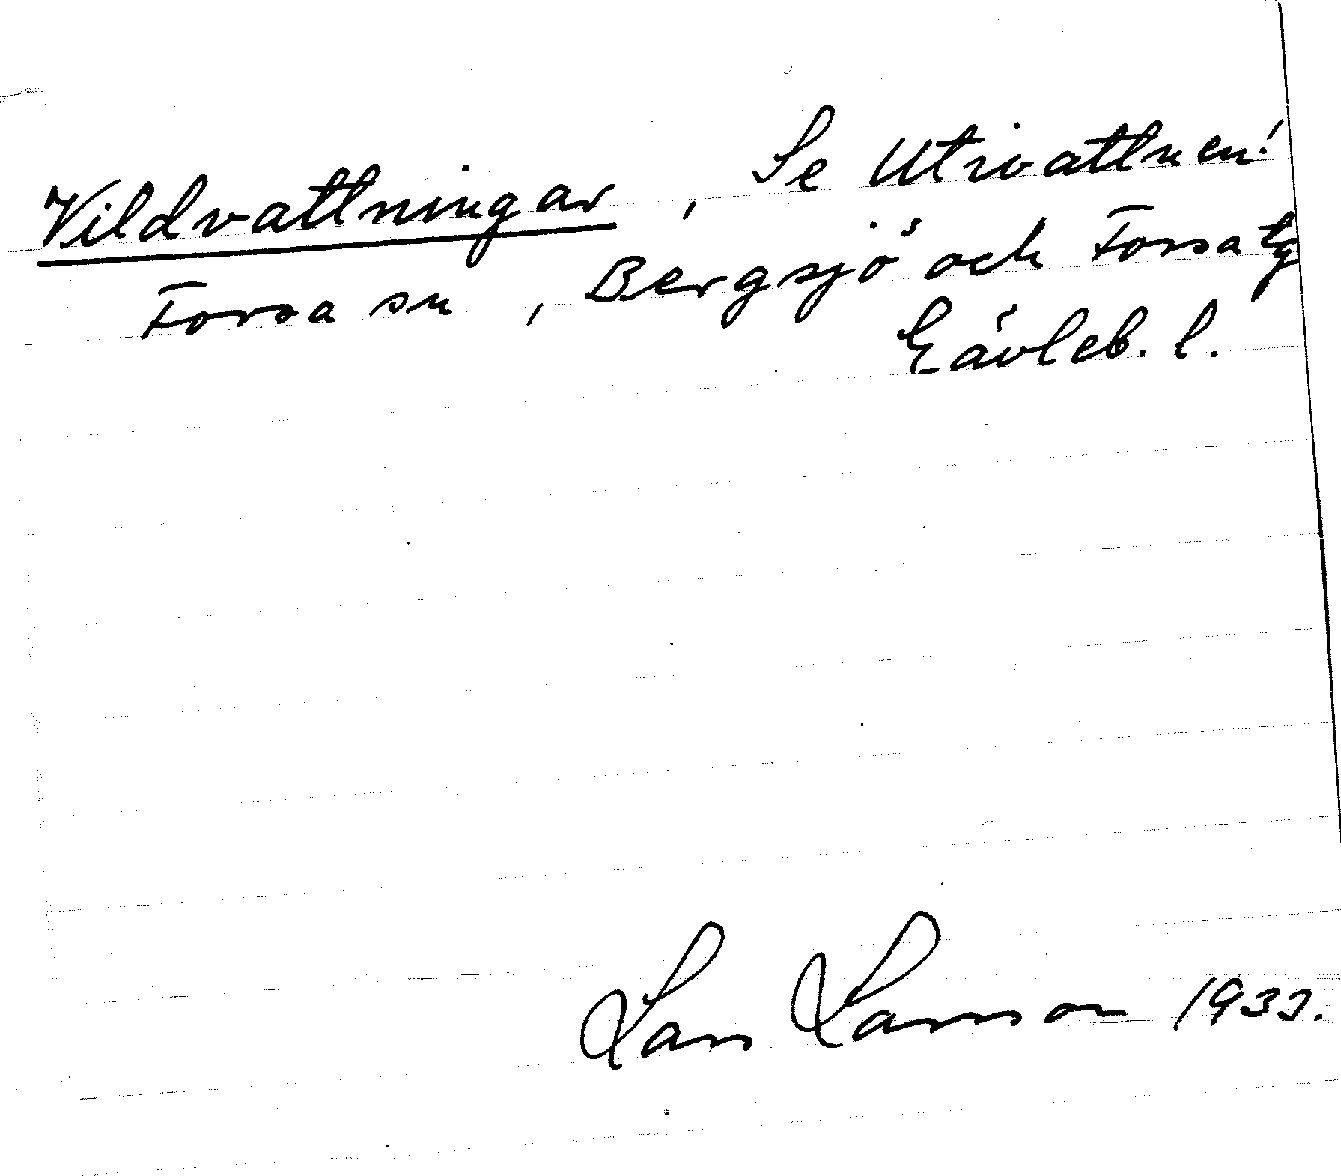 Vildvattningar, Se Utivattnen!
Forsa sn, Bergsjö och Forsa tg
Gävleb. l.
Lars Larsson 1933.